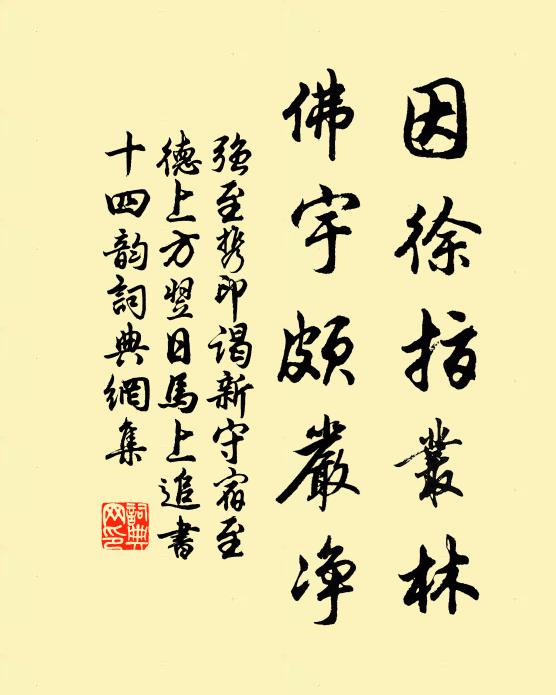 因徐指叢林
佛宇頗嚴净
強至携印謁新守宿至
德上方翌日馬上追書
十四韵詞典網集
詞典网印